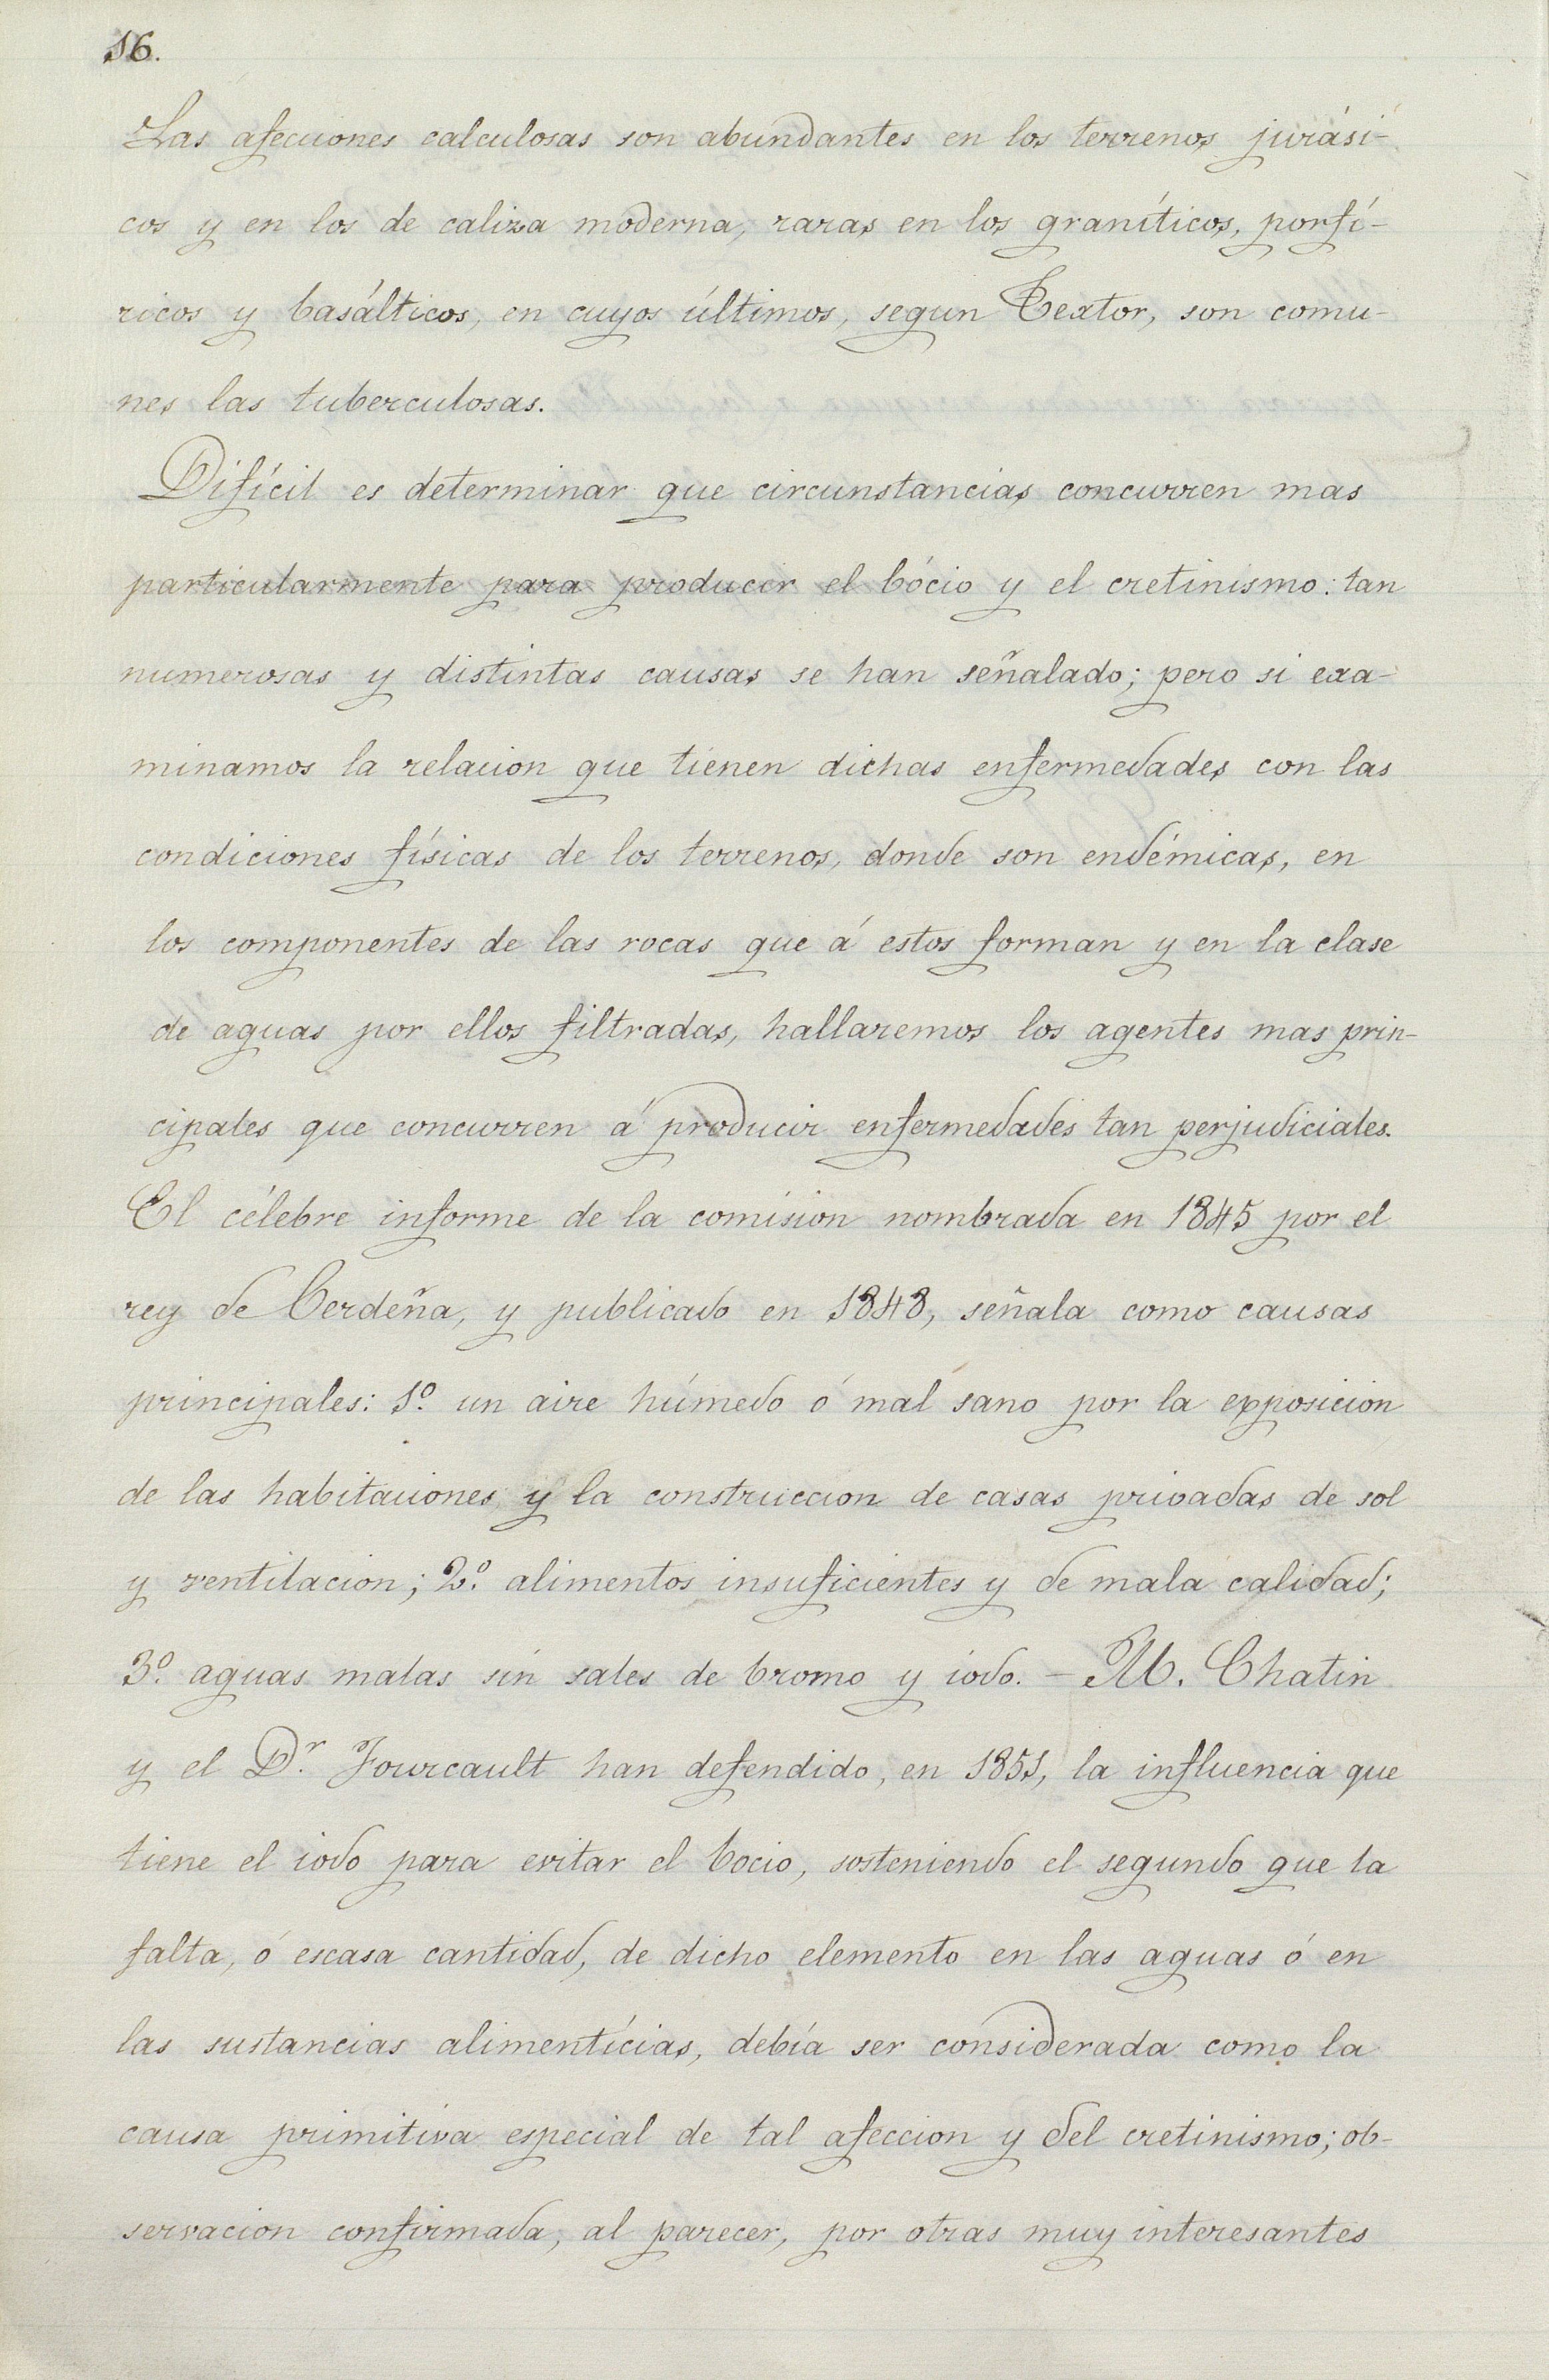 16.
Las afecciones calculosas son abundantes en los terrenos jurási-
cos y en los de caliza moderna, raras en los graníticos, porfí-
ricos y basálticos, en cuyos últimos, segun Textor, son comu-
nes las tuberculosas.
Difícil es determinar que circunstancias concurren mas
particularmente para producir el bócio y el cretinismo: tan
numerosas y distintas causas se han señalado; pero si exa-
minamos la relacion que tienen dichas enfermedades con las
condiciones físicas de los terrenos, donde son endémicas, en
los componentes de las rocas que á estos forman y en la clase
de aguas por ellos filtradas, hallaremos los agentes mas prin-
cipales que concurren á producir enfermedades tan perjudiciales.
El célebre informe de la comision nombrada en 1845 por el
rey de Cerdeña, y publicado en 1848, señala como causas
principales: 1º. un aire húmedo ó mal sano por la exposicion
de las habitaciones y la construccion de casas privadas de sol
y ventilacion; 2º. alimentos insuficientes y de mala calidad;
3º. aguas malas sin sales de bromo y iodo. - M. Chatin
y el Dr. Fourcault han defendido, en 1851, la influencia que
tiene el iodo para evitar el bocio, sosteniendo el segundo que la
falta, ó escasa cantidad, de dicho elemento en las aguas ó en
las sustancias alimentícias, debía ser considerada como la
causa primitiva especial de tal afeccion y del cretinismo; ob-
servacion confirmada, al parecer, por otras muy interesantes